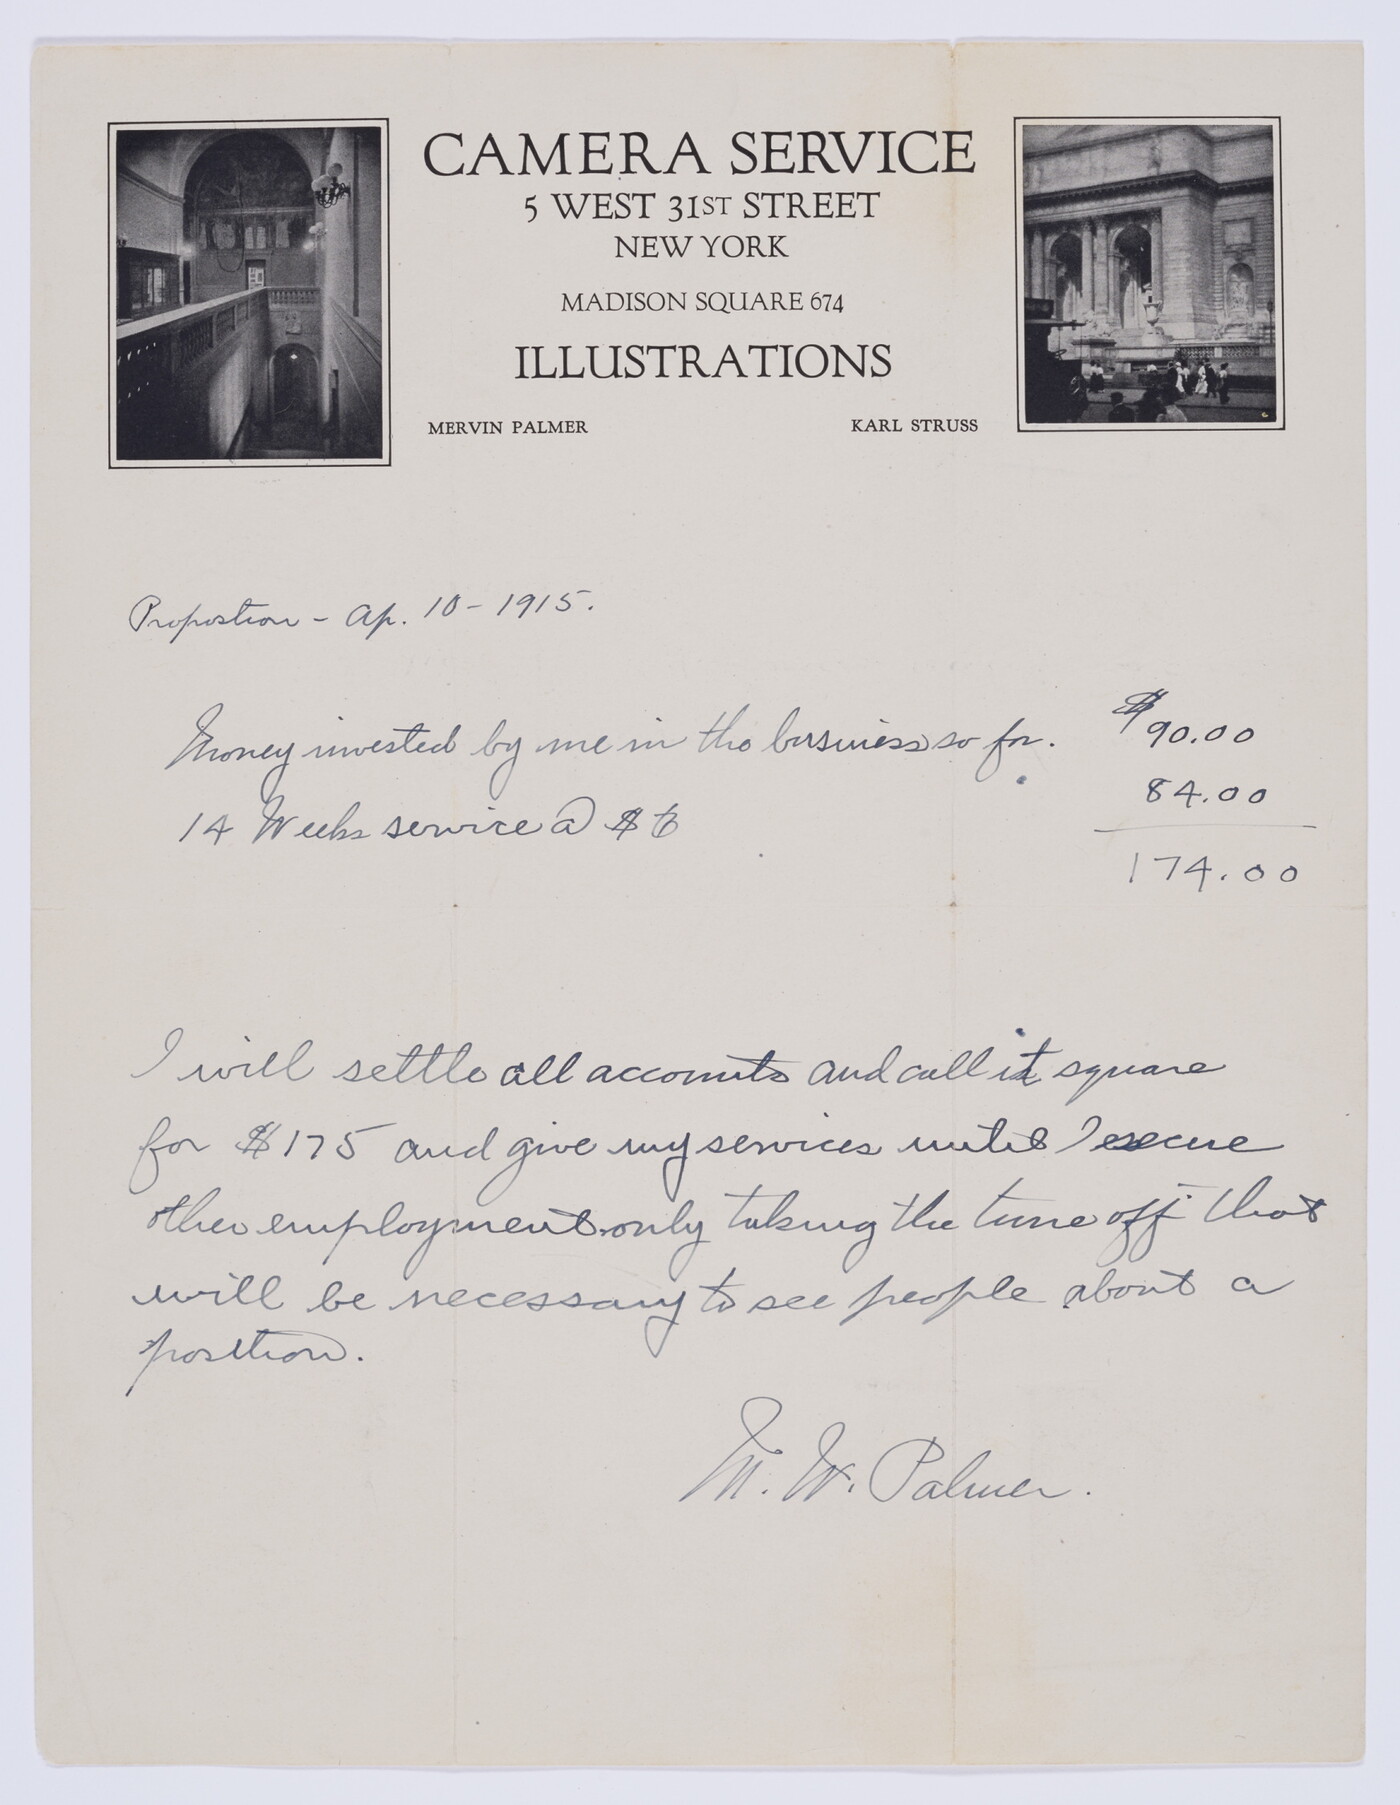 CAMERA SERVICE
5 WEST 31ST STREET
NEW YORK
MADISON SQUARE 674
ILLUSTRATIONS
MERVIN PALMER KARL STRUSS
Propostion - Ap. 10 - 1915.
Money invested by me in the business so far. $90.00
14 Weeks service @ $6 84.00
174.00
I will settle all accounts and call it square
for $175 and give my services until I
other employment only taking the time off that
will be necessary to see people about a
position.
M. W. Palmer.